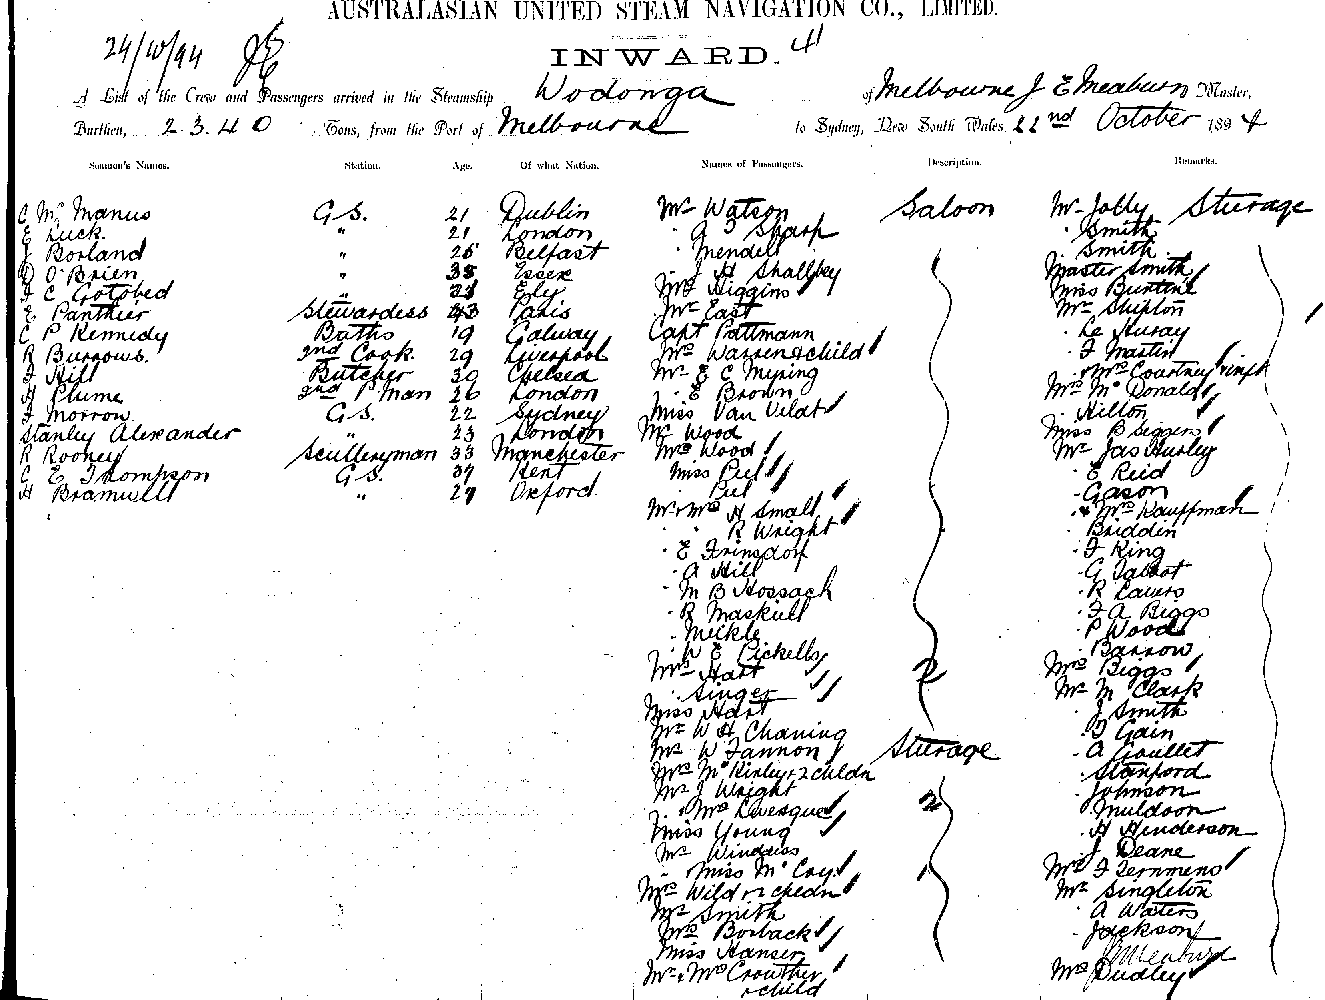 AUSTRALASIAN UNITED STEAM NAVIGATION CO., LIMITED.
24/10/94
INWARD.
A List of the Crew and Passengers arrived in the Steamship Wodonga of Melbourne J E Meaburn Master,
Burthen, 2340 Tons, from the Port of Melbourne to Sydney, New South Wales, 22nd October 1894
Seamen's Names. Station. Age. Of what Nation. Names of Passengers. Description. Remarks.
C Mc Manus G.S. 21 Dublin
E Luck. " 21 London
J Borland " 25 Belfast
O'Brien " 35 Essex
C Gotobed " Ely
E. Panthier Stewardess 43 Paris
C P Kennedy Baths 19 Galway
R Burrows. 2nd Cook. 29 Liverpool
F Hill Butcher 30 Chelsea
H Plume 2nd P Man 26 London
F Morrow G.S. 22 Sydney
Stanley Alexander " 23 London
R Rooney Sculleryman 33 Manchester
C E Thompson G.S. 37 Kent
H Bramwell " 27 Oxford.
Mr Watson Saloon
Sharp
Mendell
J H Shallbey
Higgins
Mr East
Capt Pattmann
Mrs Warren & child
Mr E C Mying
E Brown
Miss Van Veldt
Mr Wood
Mrs Wood
Miss Peel
Peel
Mr & Mrs H Small
R Wright
E Frinsdorf
A Hill
M B Hossack
R Maskiell
Meikle
W E Pickells
Mrs Hart
Singer
Miss Hart
Mr W H Chaning
Mr W Fannon Steerage
Mrs McKinley & 2 childn
Mr J Wright
Mrs Levesque
Miss Young
Mr Windess
Miss McCoy
Mrs Wild & 2 chedn
Mr Smith
Mrs Borback
Miss Hanser
Mr & Mrs Crowther
& child
Mr Jolly Steerage
Smith
Smith
Master Smith
Miss Buntine
Mr Shipton
Le Huray
F Martin
& Mrs Courtney & inft
Mrs McDonald
Hilton
Miss B Siggens
Mr Jas Hurley
E Reid
Gason
& Mrs Kauffman
Briddin
F King
G Talbot
R Lavers
F A Biggs
P Wood
Barrow
Mrs Biggs
Mr M Clark
J Smith
J Gain
A Goullet
Stanford
Johnson
Muldoon
H Henderson
J Deane
Mrs F Fernmens
Mr Singleton
A Waters
Jackson
Mrs Dudley